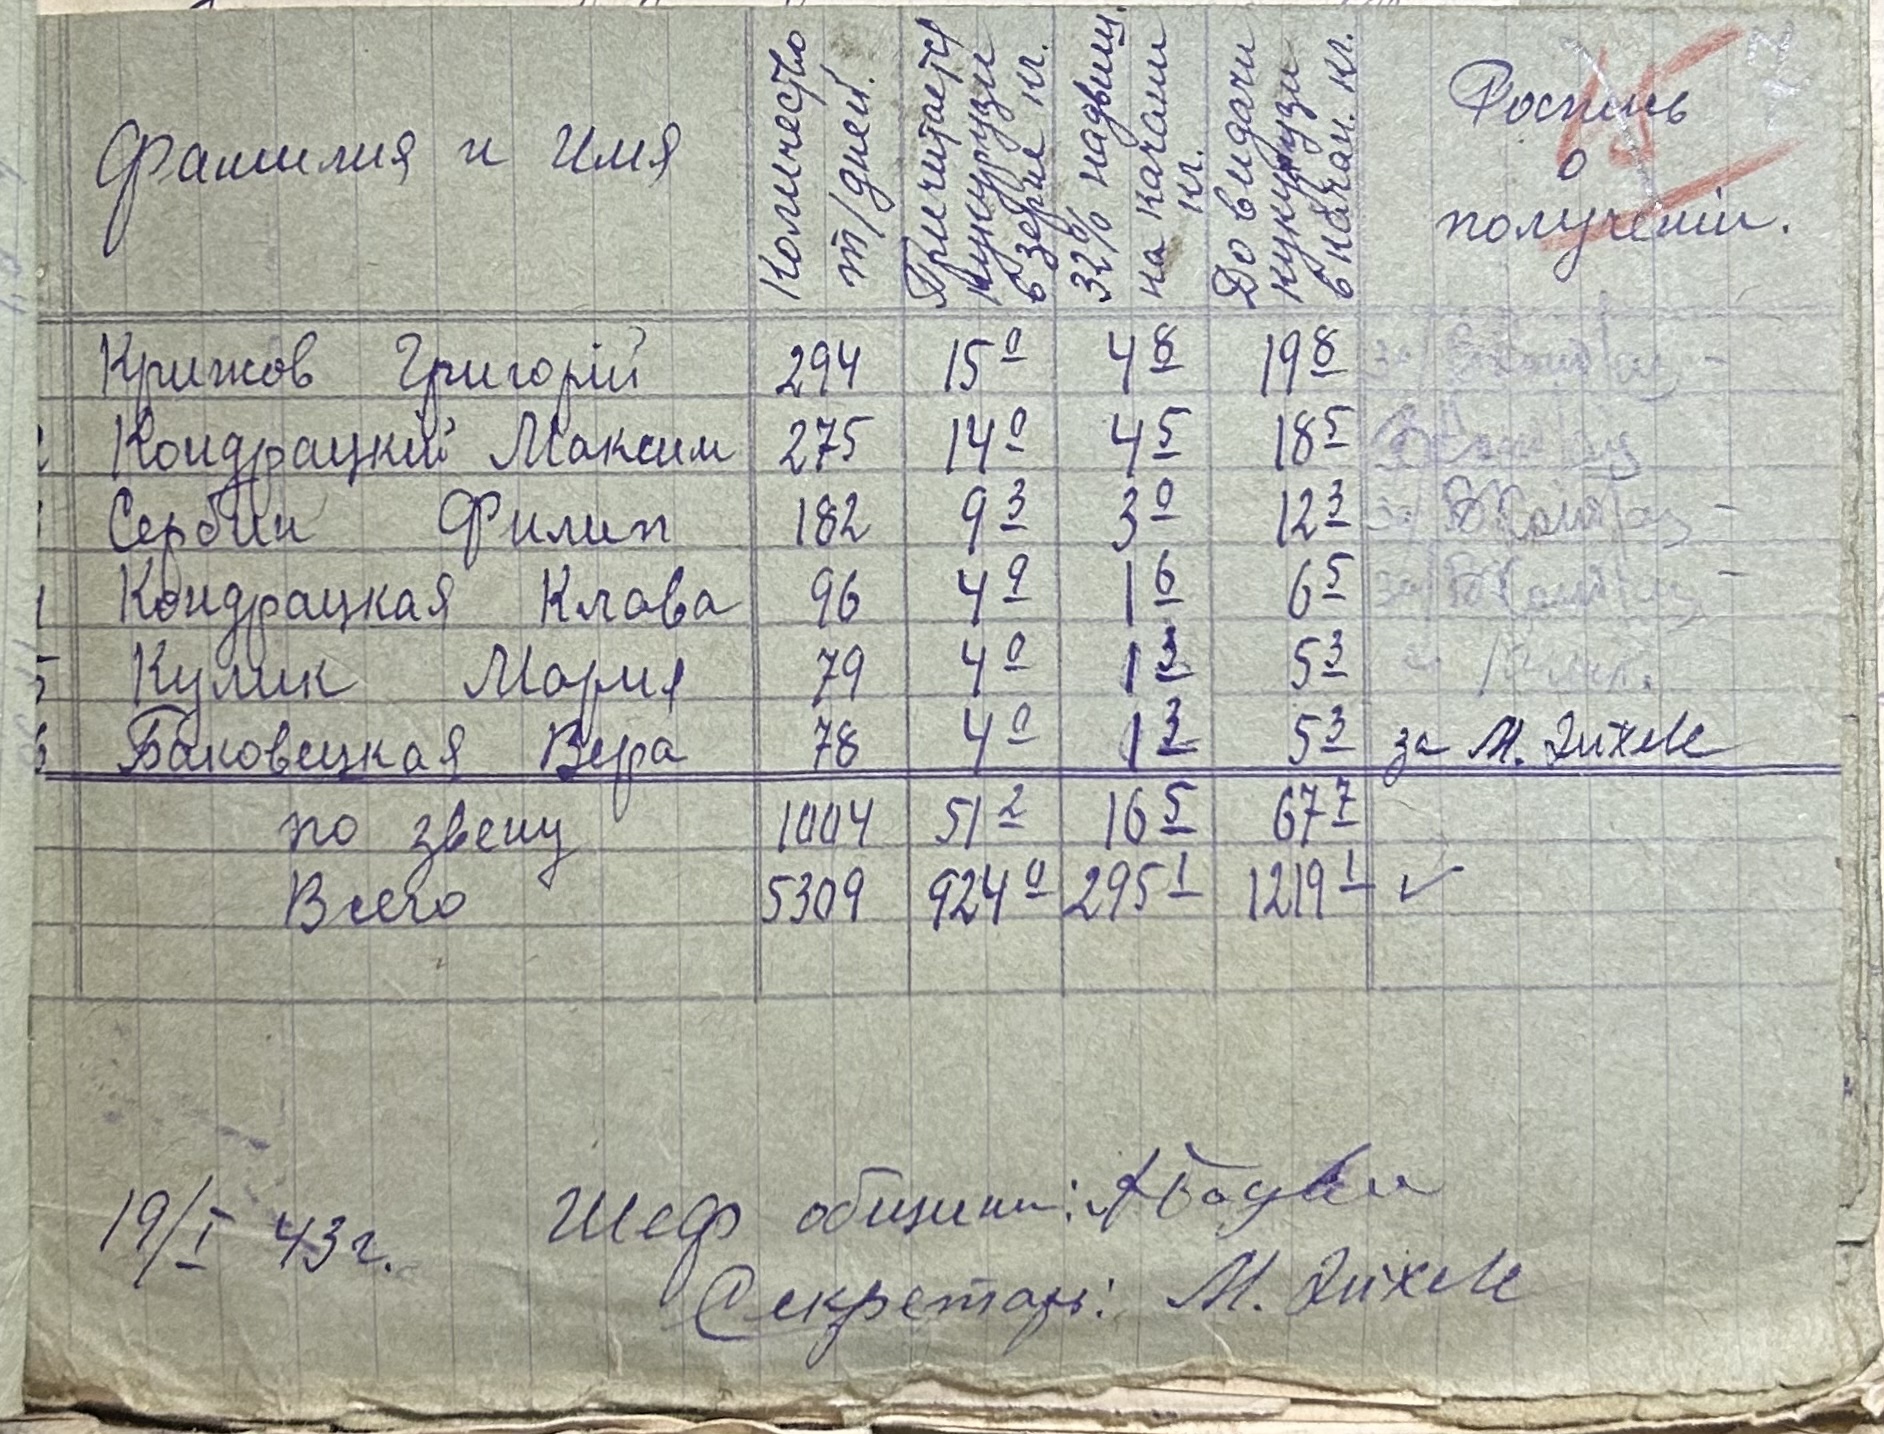 Фамилия и Имя
Количество т/дней.
Причитается кукурузи в зерне кг.
32% надвиш. на качани кг.
До видачи кукурузи в качан. кг.
Роспись о получении.
15
Крижов Григорій 294 15 0 4 8 19 8
2 Кондрацкий Максим 275 14 0 4 5 18 5
Сербин Филип 182 9 3 3 0 12 3
Кондрацкая Клава 96 4 9 1 6 6 5
5 Кулик Мария 79 4 0 1 3 5 3
6 Баковецкая Вера 78 4 0 1 3 5 3 за М.
по звену 1004 51 2 16 5 67 7
Всего 5309 924 0 295 1 1219 1 ✓
19/I 43 г. Шеф общини:
Секретарь: М.